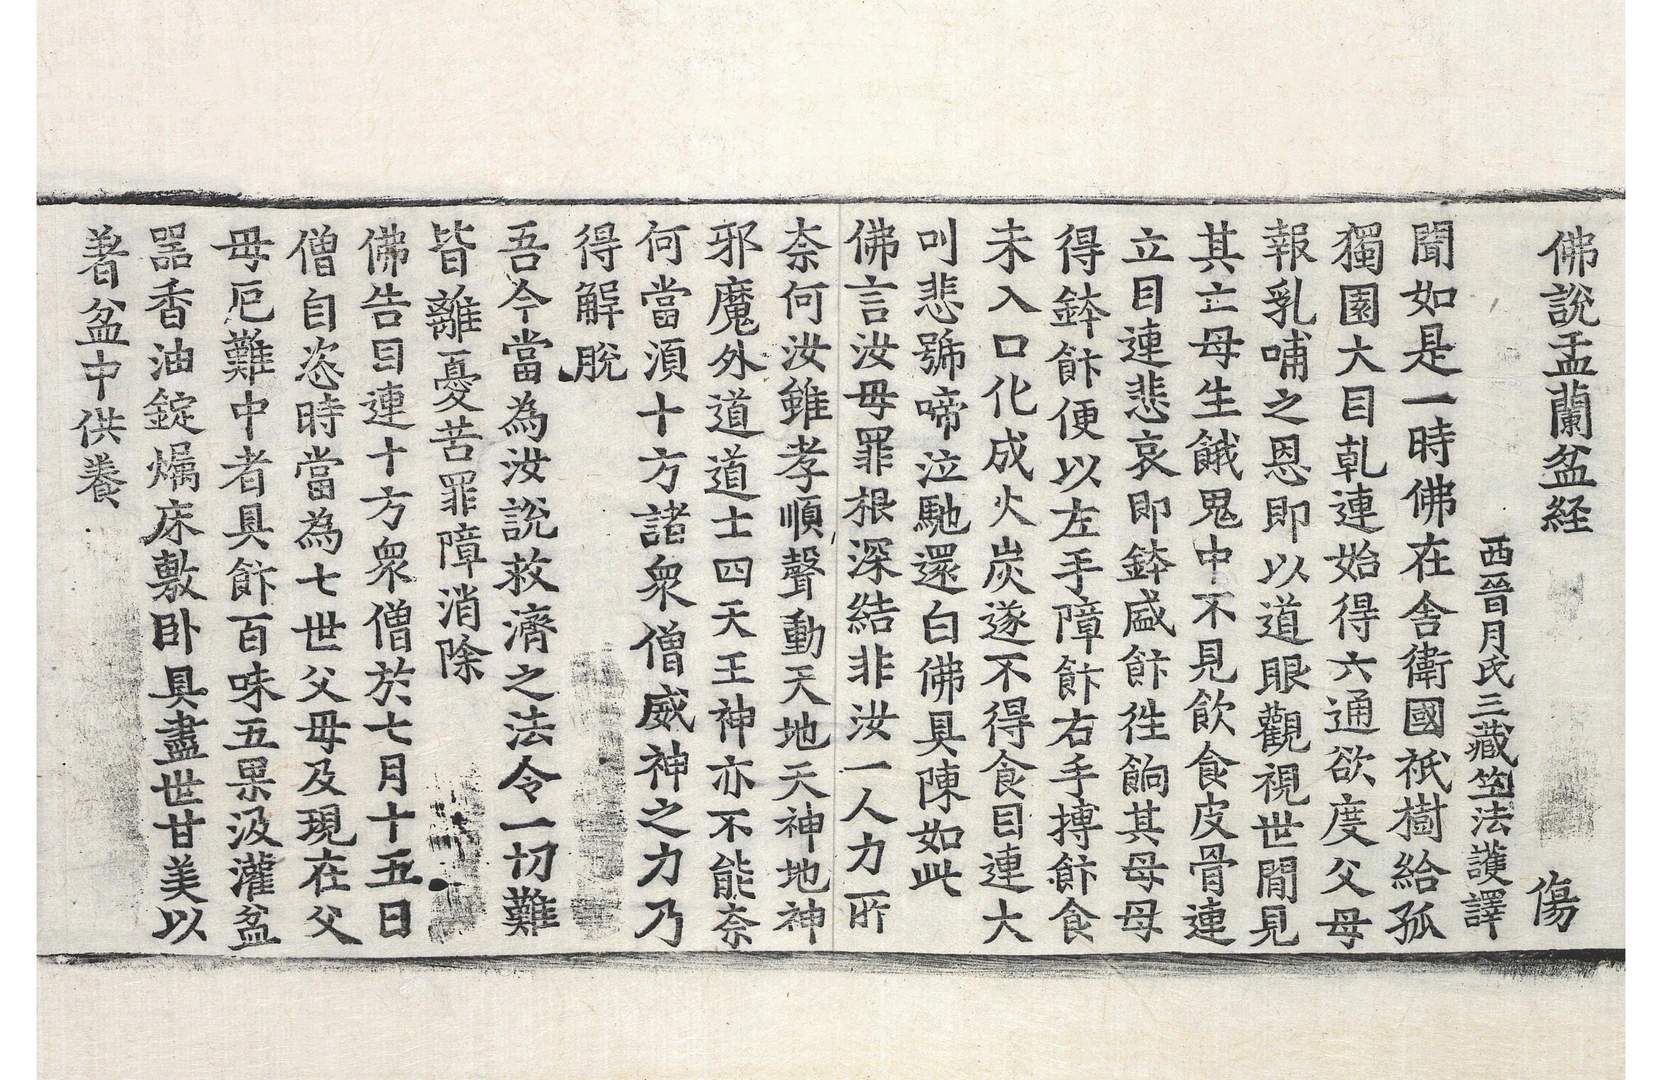 佛說盂蘭盆経 傷
西晉月氏三藏笁法護譯
聞如是一時佛在舎衛國祇樹給孤
獨園大目乹連始得六通欲度父母
報乳哺之恩即以道眼觀視世閒見
其亡母生餓鬼中不見飮食皮骨連
立目連悲哀即鉢盛飰徃餉其母母
得鉢飰便以左手障飰右手摶飰食
未入口化成火炭遂不得食目連大
叫悲號啼泣馳還白佛具陳如此
佛言汝母罪根深結非汝一人力所
柰何汝雖孝順聲動天地天神地神
邪魔外道道士四天王神亦不能柰
何當須十方諸衆僧威神之力乃
得解脫
吾今當為汝說救濟之法令一切難
皆離憂苦罪障消除
佛告目連十方衆僧於七月十五日
僧自恣時當為七世父母及現在父
母厄難中者具飰百味五果汲灌盆
器香油錠燭床敷卧具盡世甘美以
著盆中供養